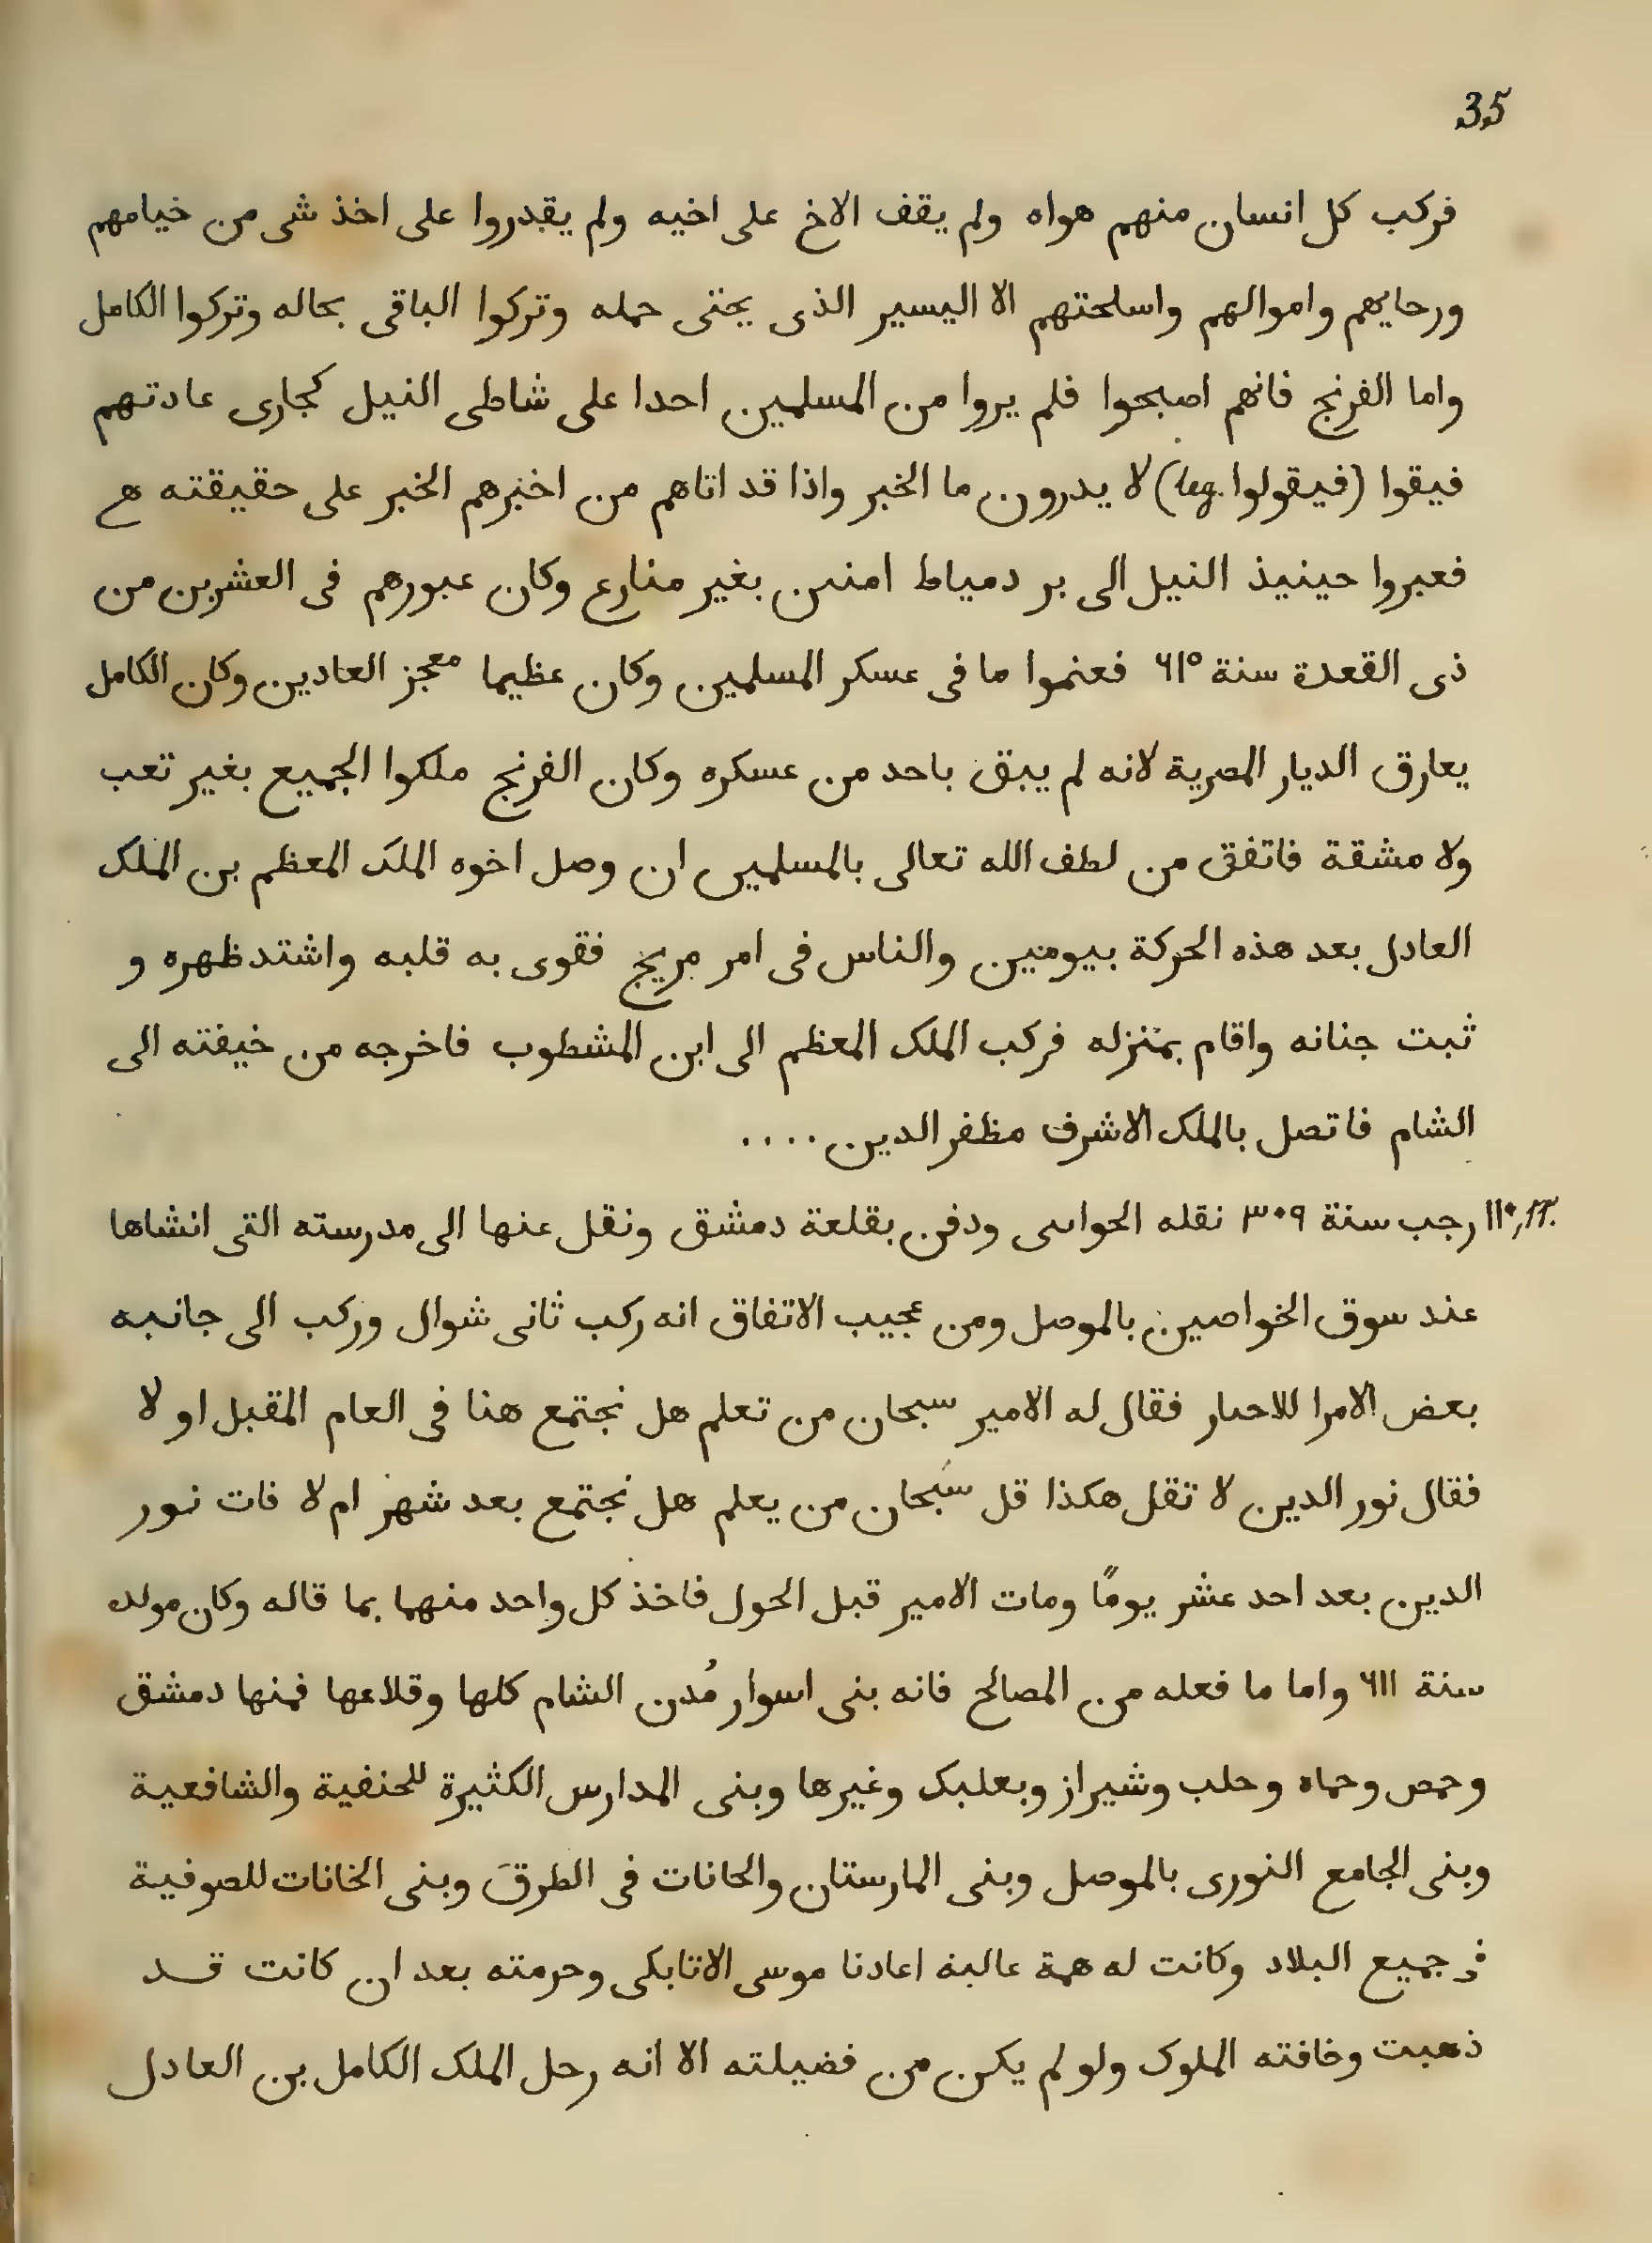 35
فركب كل انسان منهم هواه ولم يقف الاخ على اخيه ولم يقدروا على اخذ شى من خيامهم
ورحايهم واموالهم واسلحتهم الا اليسير الذى يختى حمله وتركوا الباقى بحاله وتركوا الكامل
واما الفرنج فانهم اصبحوا فلم يروا من المسلمين احدا على شاطى النيل كجارى عادتهم
فيقوا (فيقولوا .leg) لا يدرون ما الخبر واذا قد اتاهم من اخبرهم الخبر على حقيقته هح
فعبروا حينيذ النيل الى بر دمياط امنىن بغير منارع وكان عبورهم فى العشرين من
ذى القعدة سنة ٦١٥ فعنموا ما فى عسكر المسلمين وكان عظيما معجز العادين وكان الكامل
يعارق الديار المصرية لانه لم يبق باحد من عسكره وكان الفرنج ملكوا الجميع بغير تعب
ولا مشقة فاتفق من لطف الله تعالى بالمسلمين ان وصل اخوه الملك المعظم بن الملك
العادل بعد هذه الحركة بيومين والناس فى امر مريج فقوى به قلبه واشتد ظهره و
ثبت جنانه واقام بمنزله فركب الملك المعظم الى ابن المشطوب فاخرجه من خيفته الى
الشام فاتصل بالملك الاشرف مظفر الدين ....
رجب سنة ٣٠٩ نقله الحواسى ودفن بقلعة دمشق ونقل عنها الى مدرسته التى انشاها
عند سوق الخواصين بالموصل ومن عجيب الاتفاق انه ركب ثانى شوال وركب الى جانبه
بعض الامرا للاحىار فقال له الامير سبحان من تعلم هل نجتمع هنا فى العام المقبل او لا
فقال نور الدين لا تقل هكذا قل سبحان من يعلم هل نجتمع بعد شهر ام لا فات نور
الدين بعد احد عشر يومًا ومات الامير قبل الحول فاخذ كل واحد منهما بما قاله وكان مولده
سنة ٦١١ واما ما فعله من المصالح فانه بنى اسوار مُدن الشام كلها وقلاعها فمنها دمشق
وحمص وحماه وحلب وشيراز وبعلبك وغيرها وبنى المدارس الكثيرة للحنفية والشافعية
وبنى الجامع النورى بالموصل وبنى المارستان والحانات فى الطرقَ وبنى الخانات للصوفية
فى جميع البلاد وكانت له همة عالبة اعادنا موسى الاتابكى وحرمته بعد ان كانت قد
ذهبت وخافته الملوك ولو لم يكن من فضيلته الا انه رحل الملك الكامل بن العادل